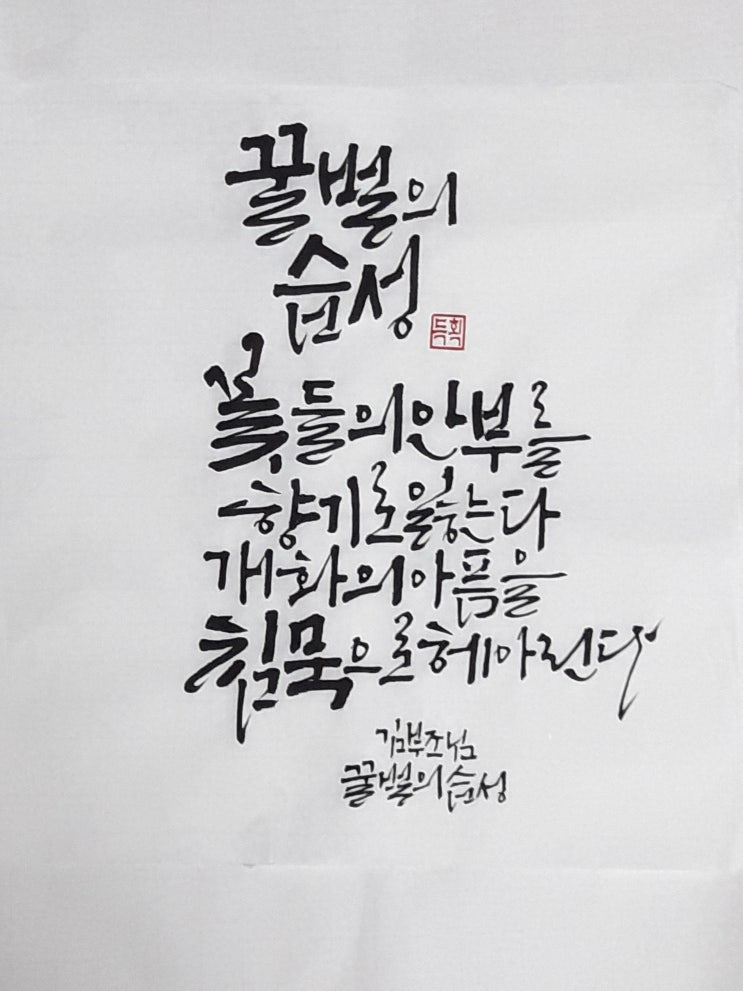 꿀벌의
습성
득획
꽃들의 안부를
향기로 읽는다
개화의 아픔을
침묵으로 헤아린다
김부조님
꿀벌의 습성